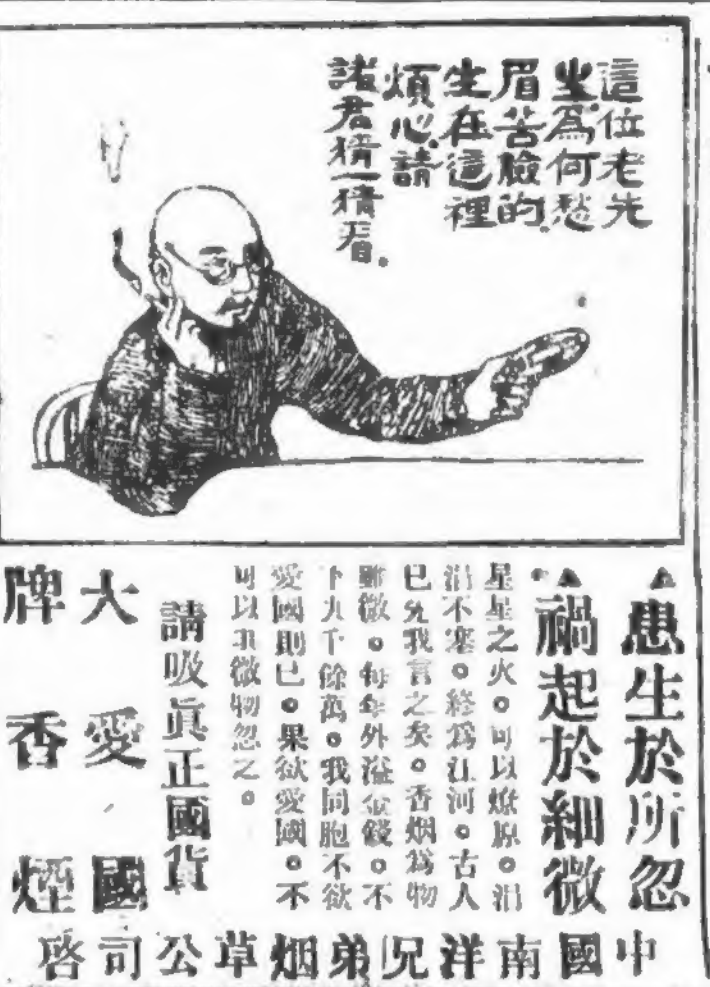 這位老先
坐爲何愁
眉苦臉的
生在這裡
煩心請
諸君猜一猜看。
▲患生於所忽
▲禍起於細微
星星之火。可以燎原。涓
涓不塞。終爲江河。古人
已先我言之矣。香烟爲物
雖微。每年外溢金錢。不
下九千餘萬。我同胞不欲
愛國則已。果欲愛國。不
可以其微物忽之。
請吸眞正國貨
大愛國
牌香煙
中國南洋兄弟烟草公司啓